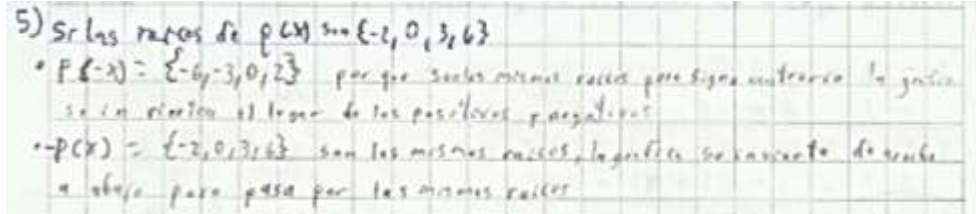 5) Si las raices de p(x) son {-2, 0, 3, 6}
• P(-x) = {-6, -3, 0, 2} por que son las mismas raices pero signo contrario la grafica
se in el lugar de los positivos y negativos
• -P(x) = {-2, 0, 3, 6} son las mismas raices, la grafica se invierte de arriba
a abajo pero pasa por las mismas raices